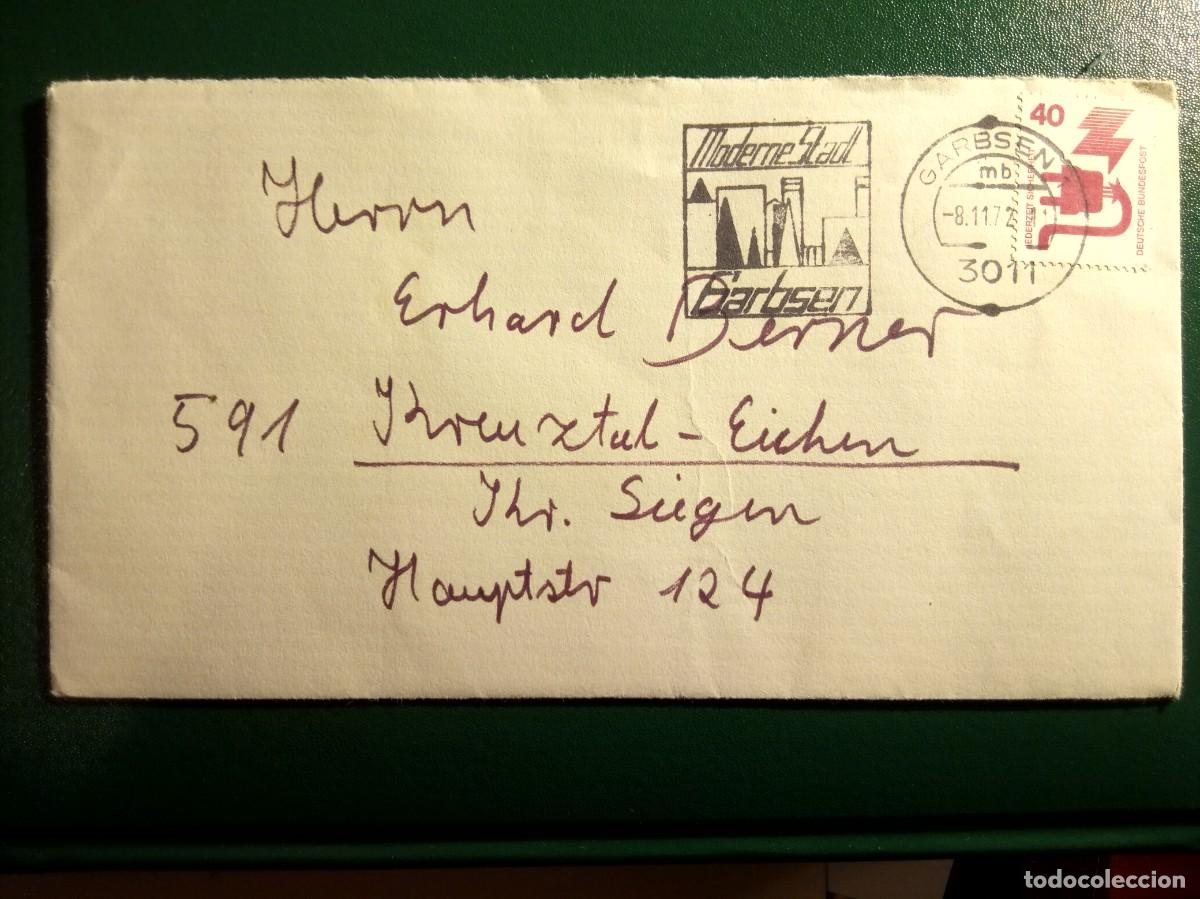 Moderne Stadt
Garbsen
GARBSEN 1
mb
-8.11.72
3011
40
JEDERZEIT SICHERHEIT
DEUTSCHE BUNDESPOST
Herrn
Erhard Berner
591 Kreuztal-Eichen
Kr. Siegen
Hauptstr 124
todocoleccion